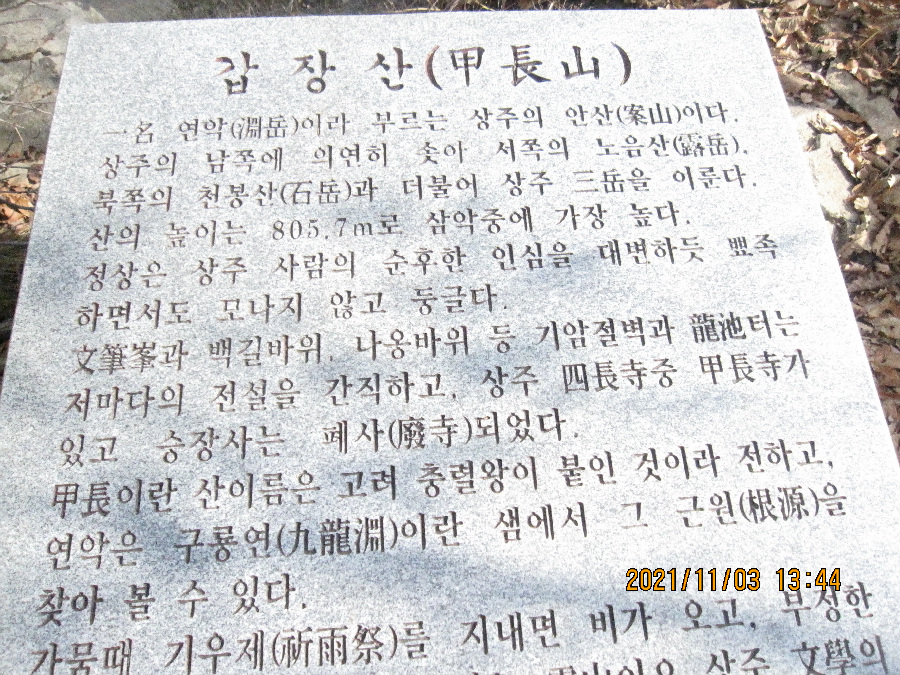 갑장산(甲長山)
一名 연악(淵岳)이라 부르는 상주의 안산(案山)이다.
상주의 남쪽에 의연히 솟아 서쪽의 노음산(露岳),
북쪽의 천봉산(石岳)과 더불어 상주 三岳을 이룬다.
산의 높이는 805.7m로 삼악중에 가장 높다.
정상은 상주 사람의 순후한 인심을 대변하듯 뾰족
하면서도 모나지 않고 둥글다.
文筆峯과 백길바위, 나옹바위 등 기암절벽과 龍池터는
저마다의 전설을 간직하고, 상주 四長寺중 甲長寺가
있고 승장사는 폐사(廢寺)되었다.
甲長이란 산이름은 고려 충렬왕이 붙인 것이라 전하고,
연악은 구룡연(九龍淵)이란 샘에서 그 근원(根源)을
찾아 볼 수 있다.
가뭄때 기우제(祈雨祭)를 지내면 비가 오고, 무성한
상주 文學의
2021/11/03 13:44